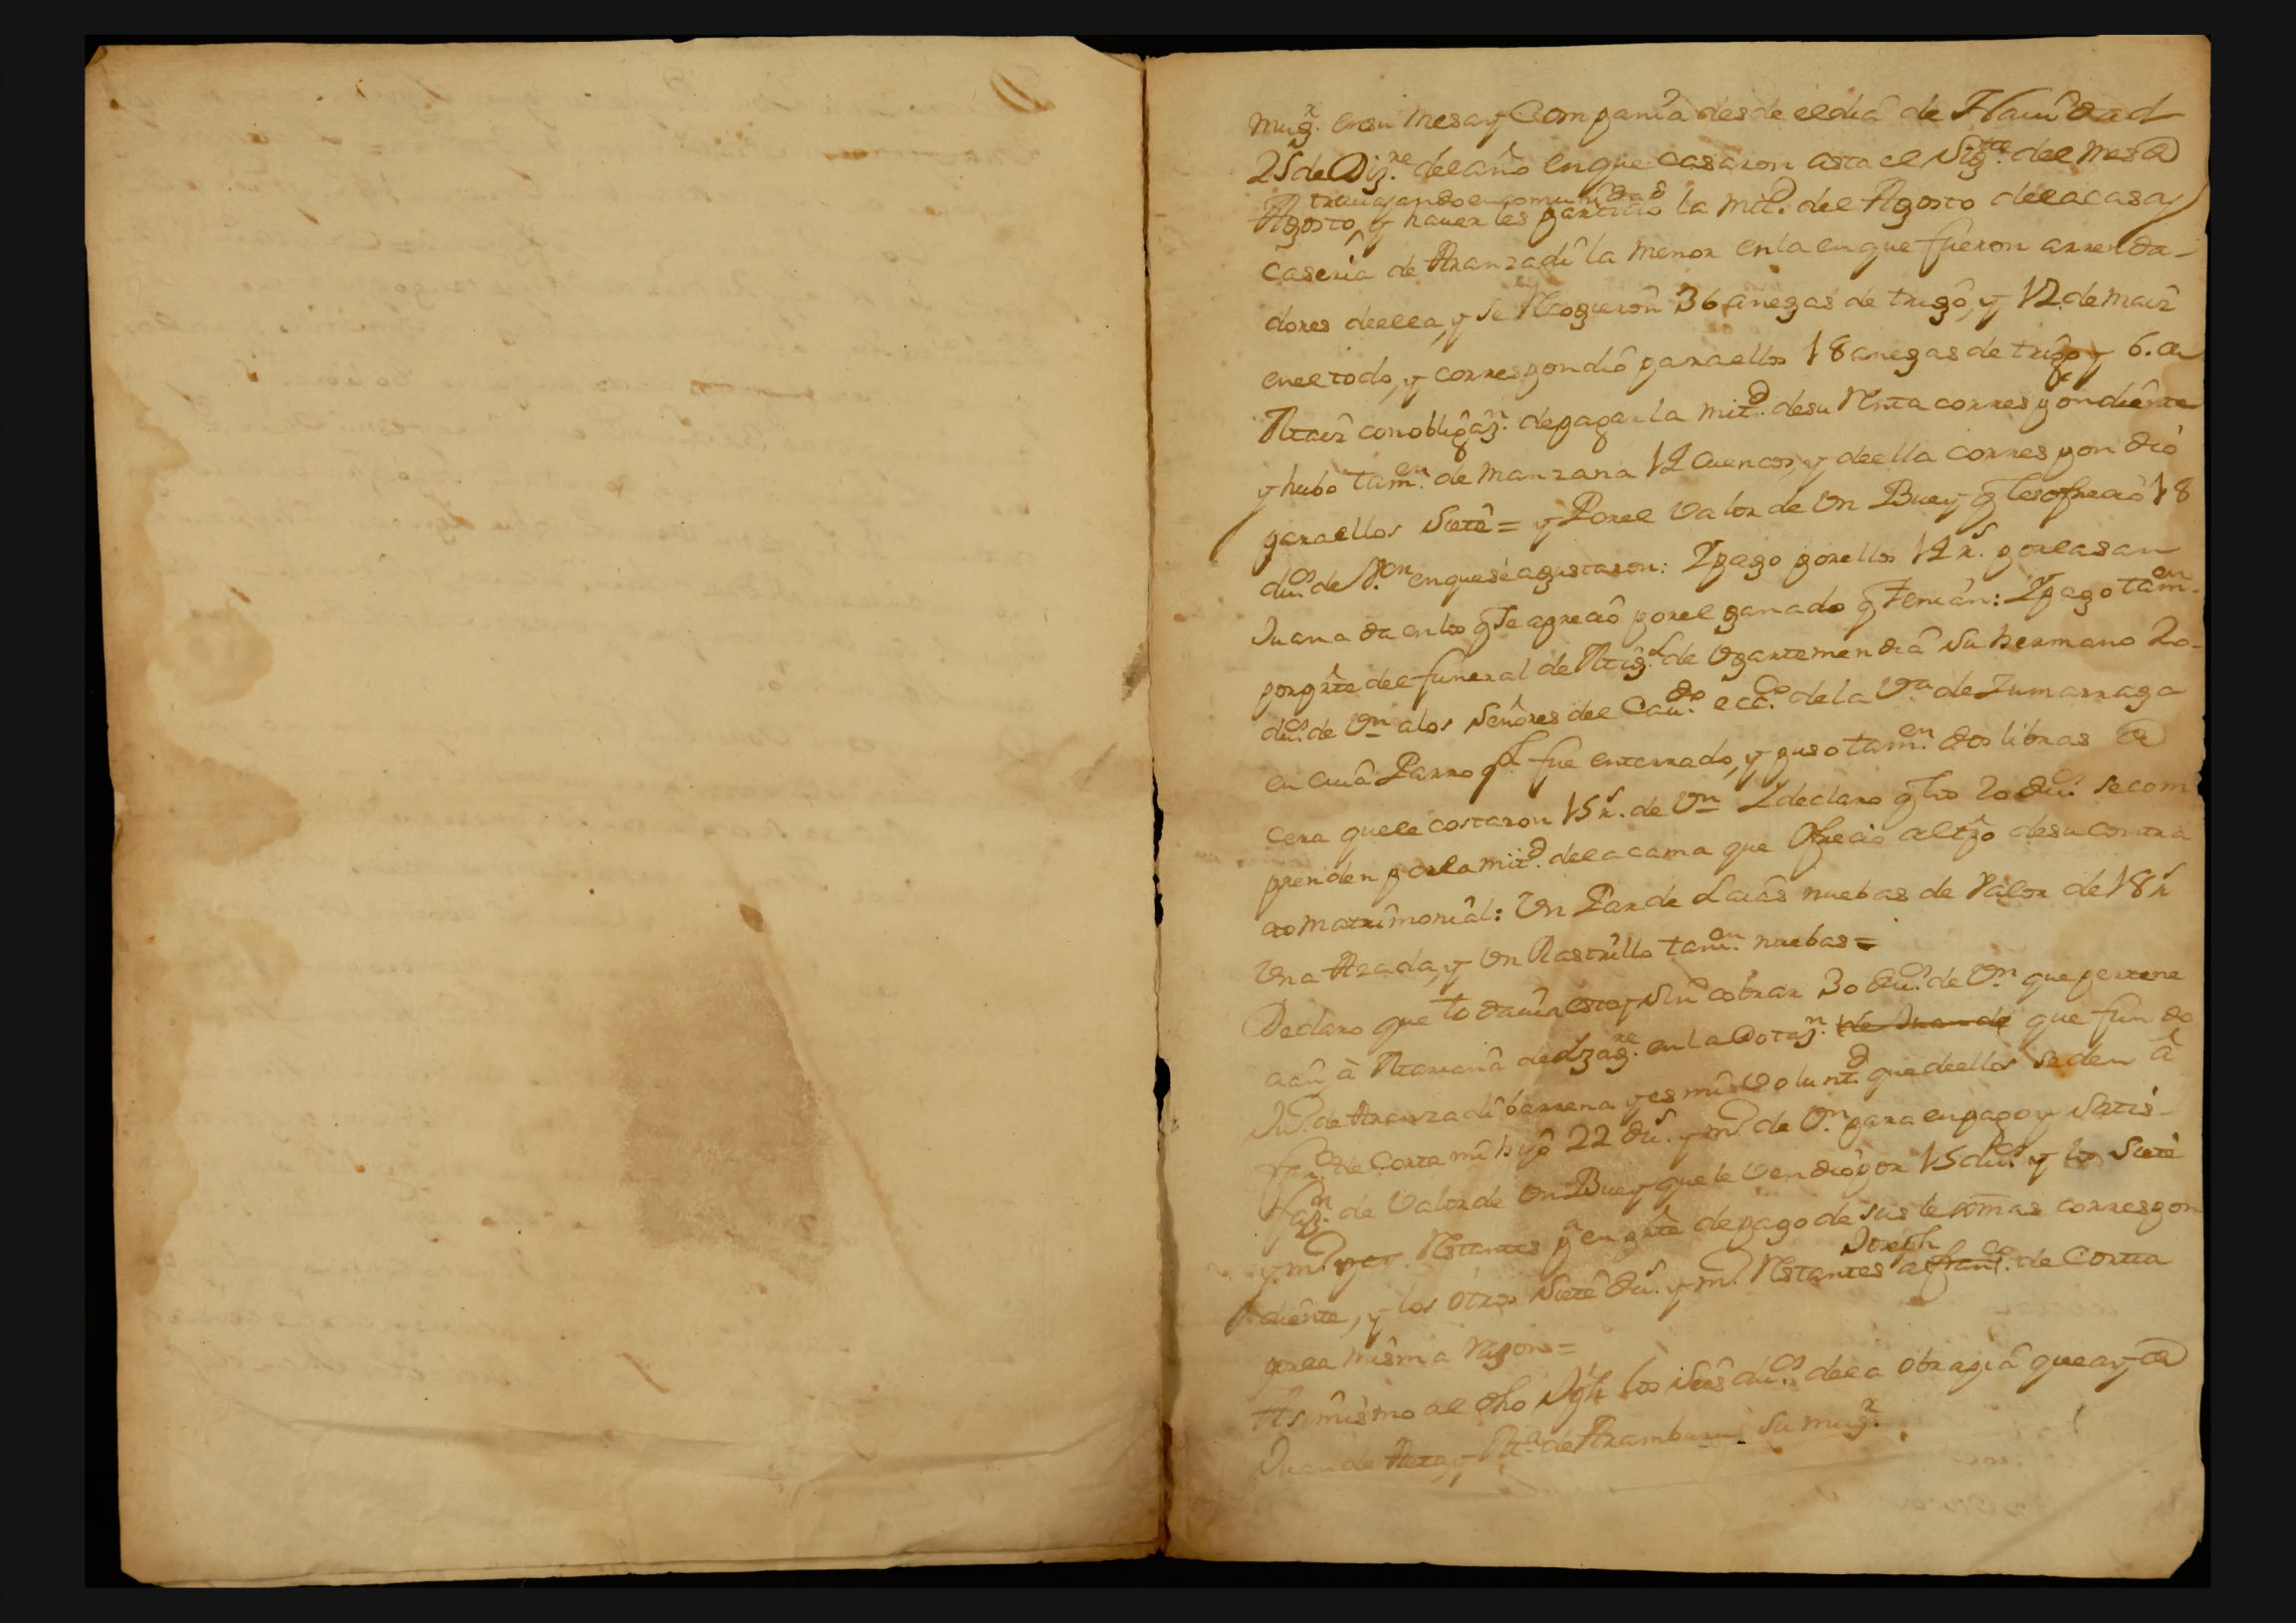 mug.r en su mesa y Compania desde el dia de Navidad
25 de Diz.re del año en que casaron asta el sig.te del mes de
trauajando en comunidad
Agosto, y hauerles partido la mit.d del Agosto de la casa
caseria de Aranzadi la menor en la en que fueron arrenda-
dores de ella, y se Recogieron 36 anegas de trigo, y 12 de maiz
en el todo, y correspondio para ellos 18 anegas de trigo y 6. de
Maiz con obligaz.n de pagar la mit.d de su Renta correspondiente
y hubo tam.en de manzana 12 cuencos, y de ella correspondio
para ellos siete = y Por el valor de Vn Buey q les ofrecio 18
du.os de V.on en que se ajustaron: Y pago por ellos 12 r.s por la san
Juana da en los q Se aprecio por el ganado q Tenian: Y pago tam.en
por p.te del funeral de Mig.l de Vgartemendia su hermano 20-
du.os de V.n a los Señores del Cau.do ecc.co de la V.a de Zumarraga
en cuia Parroq.l fue enterrado, y puso tam.en dos libras de
cera que le costaron 15 r.s de V.n Y declaro q los 20 du.os se com
prenden por la mit.d de la cama que Ofrecio al tpo de su contra
to matrimonial: Vn Par de Laias nuebas de Valor de 18 r.s
Vna Azada, y Vn Rastrillo tam.en nuebas =
Declaro que todauia estoy sin cobrar 30 du.os de V.n que pertene
cen à Mariana de Lzag.re en la Dotaz.n de Juan de que fundo
Ju.o de Aranzadi barrena y es mi volunt.d que de ellos se den â
fran.co de Corta mi hijo 22 du.s y m.o de V.n para en pago y satis-
faz.n de Valor de Vn Buey que le vendio por 15 du.os y los siete
y m.o Restantes p.a en p.te de pago de sus lexitimas correspon
diente, y los otros siete du.s y m.o Restantes a fran.co Joseph de Corta
por la misma razon =
Asi mismo al dho Jph los seis du.os de la obra pia que ay de
Juan de Areta, y M.a de Aramburu su mug.r